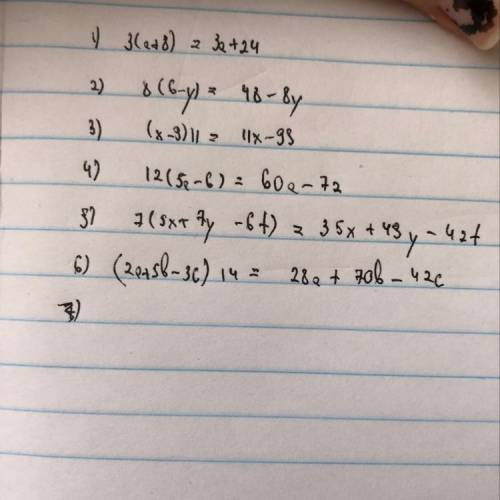 1) 3(a+8) = 3a+24
2) 8(6-y) = 48-8y
3) (x-9)11 = 11x-99
4) 12(5a-6) = 60a-72
5) 7(5x+7y-6t) = 35x+49y-42t
6) (2a+5b-3c)14 = 28a+70b-42c
7)